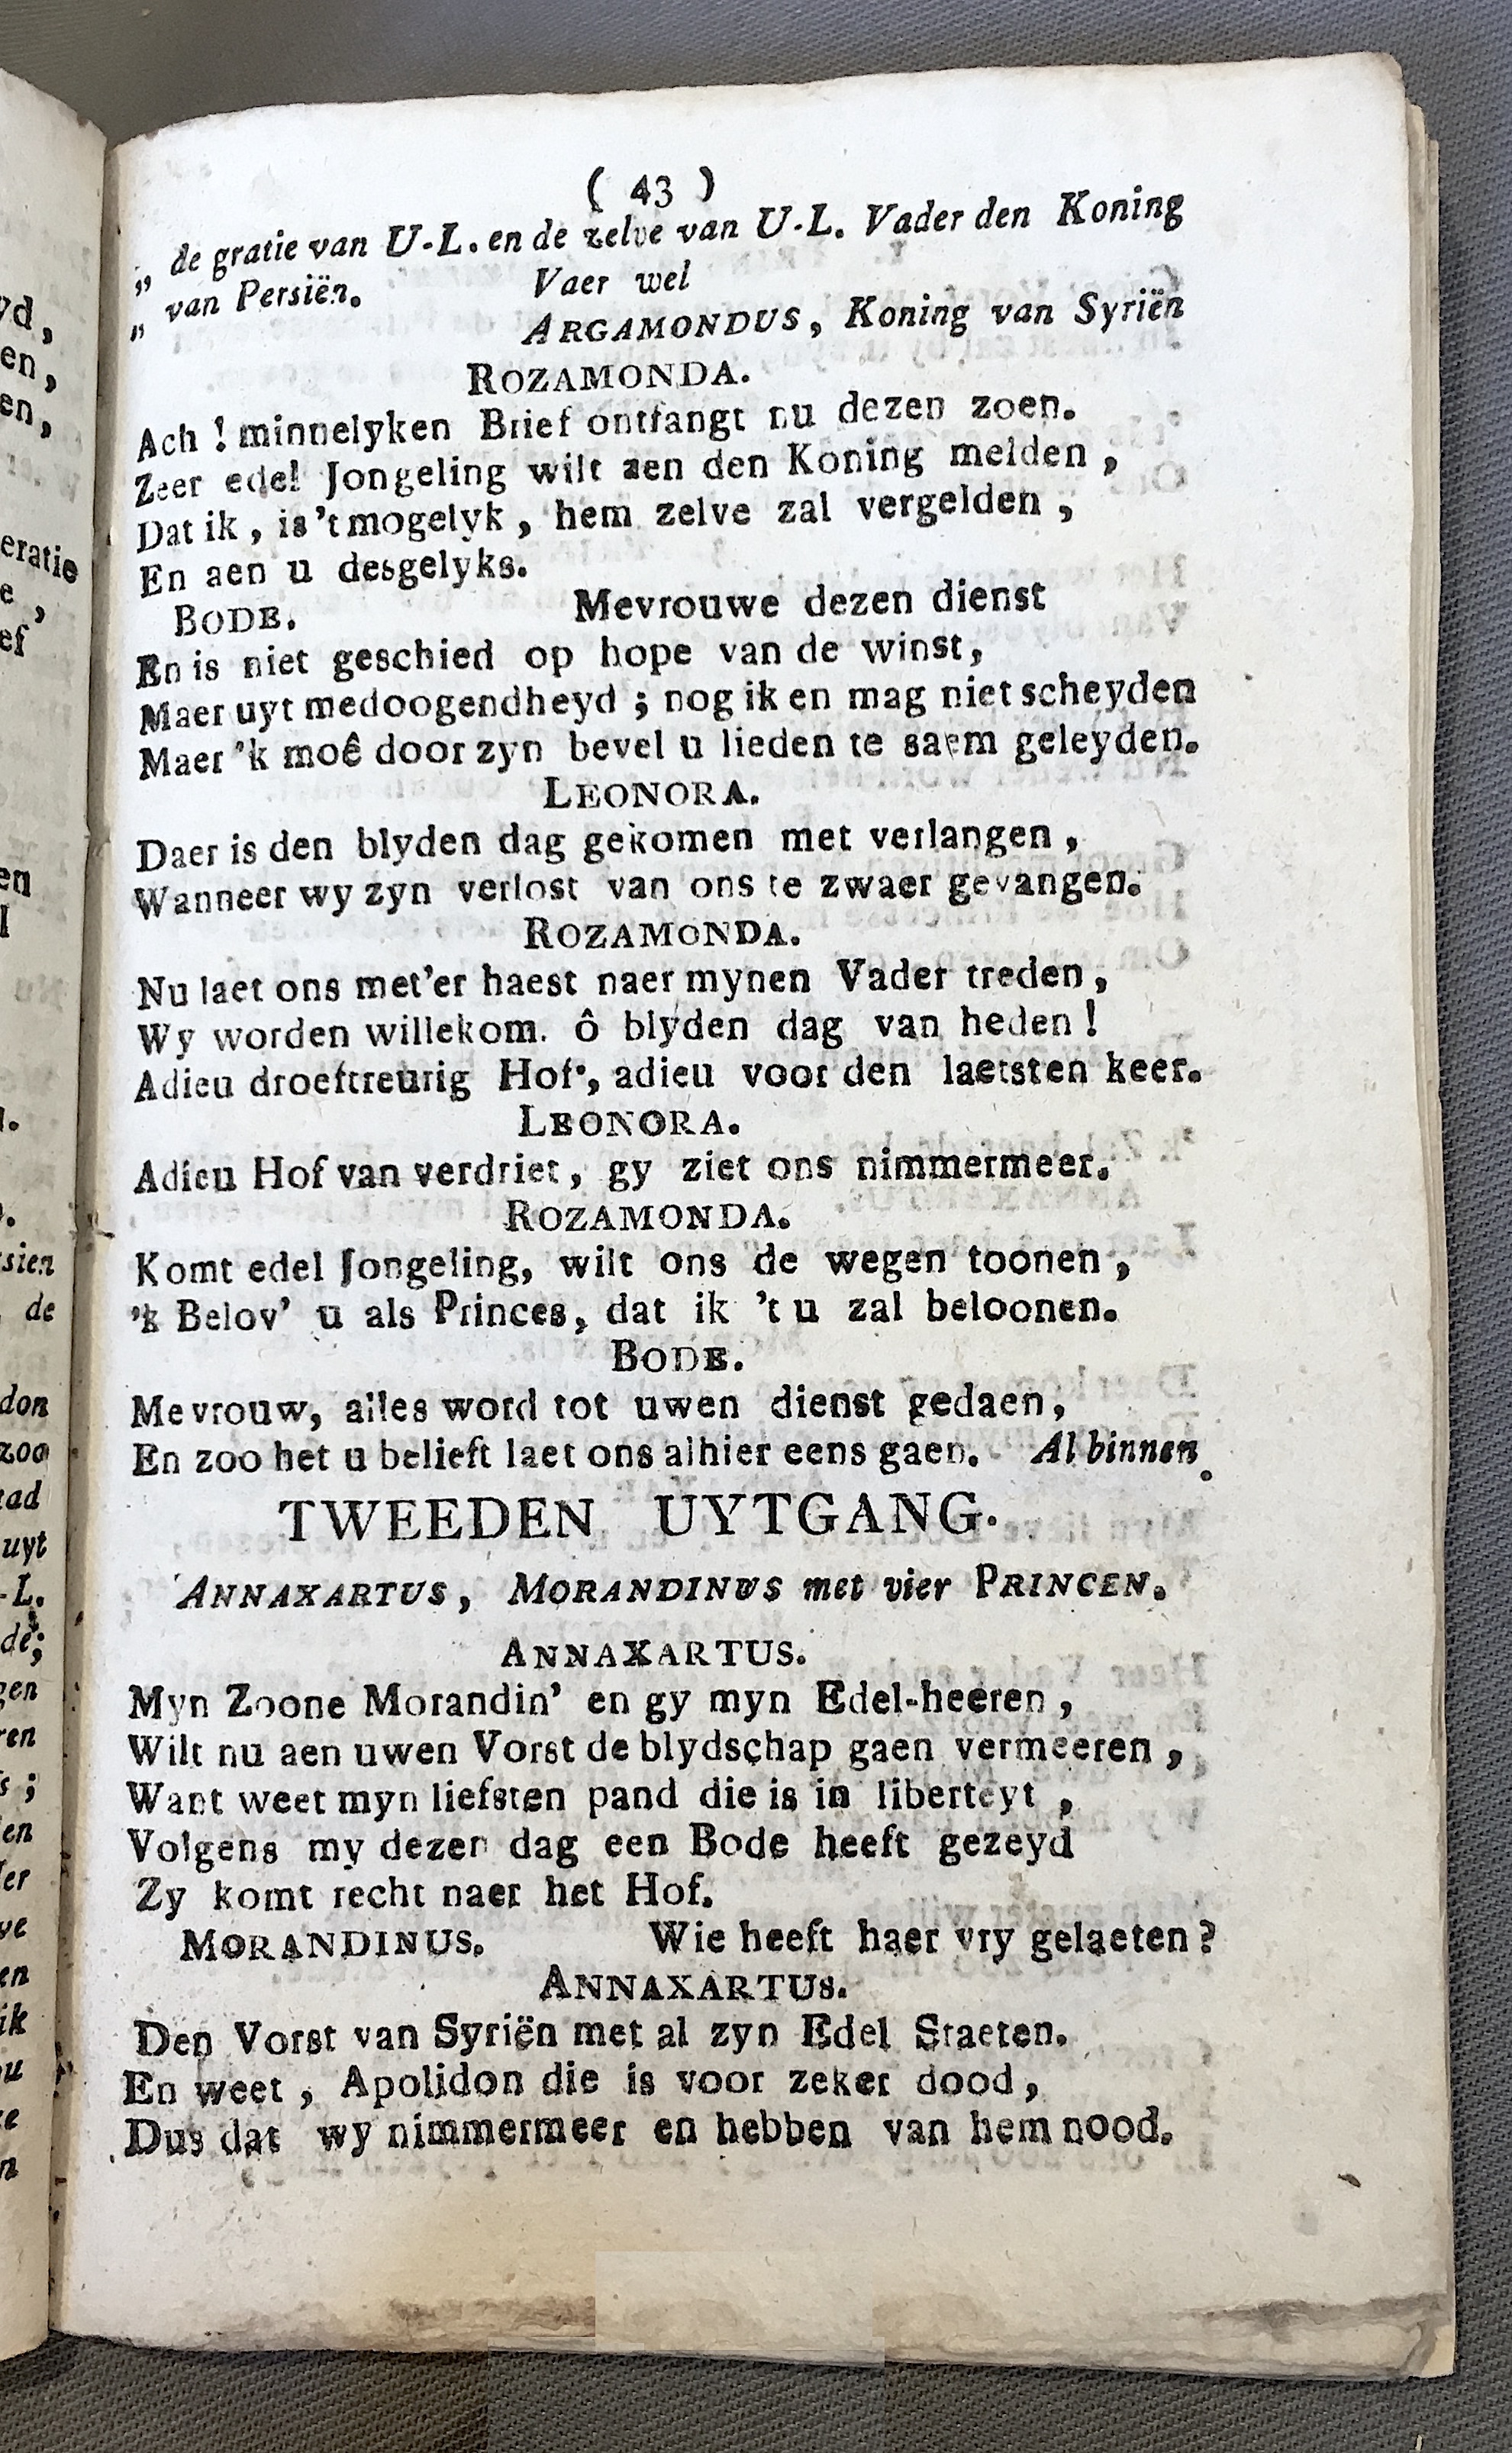 yd,
en,
en,
eratie
e,
ef
en
l
.
.
sien
de
don
zoo
tad
uyt
-L.
de;
gen
ren
s;
en
er
ve
en
ik
ou
n
( 43 )
„ de gratie van U-L. en de zelve van U-L. Vader den Koning
„ van Persiën. Vaer wel
ARGAMONDUS, Koning van Syriën
ROZAMONDA.
Ach! minnelyken Brief ontfangt nu dezen zoen.
Zeer edel Jongeling wilt aen den Koning melden,
Dat ik, is 't mogelyk, hem zelve zal vergelden,
En aen u desgelyks.
BODE. Mevrouwe dezen dienst
En is niet geschied op hope van de winst,
Maer uyt medoogendheyd; nog ik en mag niet scheyden
Maer 'k moê door zyn bevel u lieden te saem geleyden.
LEONORA.
Daer is den blyden dag gekomen met verlangen,
Wanneer wy zyn verlost van ons te zwaer gevangen.
ROZAMONDA.
Nu laet ons met'er haest naer mynen Vader treden,
Wy worden willekom. ô blyden dag van heden!
Adieu droeftreurig Hof, adieu voor den laetsten keer.
LEONORA.
Adieu Hof van verdriet, gy ziet ons nimmermeer.
ROZAMONDA.
Komt edel Jongeling, wilt ons de wegen toonen,
'k Belov' u als Princes, dat ik 't u zal beloonen.
BODE.
Mevrouw, alles word tot uwen dienst gedaen,
En zoo het u belieft laet ons alhier eens gaen. Al binnen.
TWEEDEN UYTGANG.
ANNAXARTUS, MORANDINUS met vier PRINCEN.
ANNAXARTUS.
Myn Zoone Morandin' en gy myn Edel-heeren,
Wilt nu aen uwen Vorst de blydschap gaen vermeeren,
Want weet myn liefsten pand die is in liberteyt,
Volgens my dezen dag een Bode heeft gezeyd
Zy komt recht naer het Hof.
MORANDINUS. Wie heeft haer vry gelaeten?
ANNAXARTUS.
Den Vorst van Syriën met al zyn Edel Staeten.
En weet, Apolidon die is voor zeker dood,
Dus dat wy nimmermeer en hebben van hem nood.